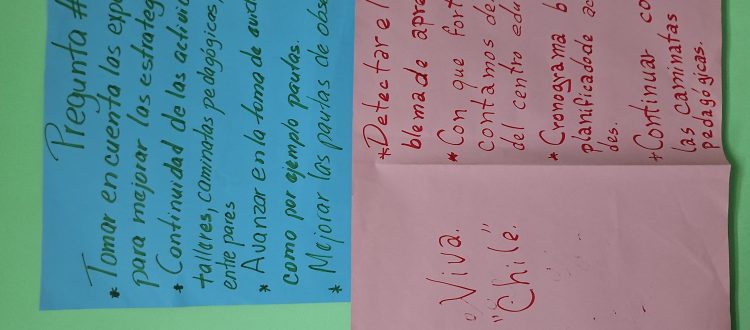 Pregunta #
* Tomar en cuenta las expe
para mejorar las estrateg
* Continuidad de las activid
talleres, caminatas pedagógicas,
entre pares
* Avanzar en la toma de
como por ejemplo pautas.
* Mejorar las pautas de obse
* Detectar el
blema de apre
* Con que fort
contamos de
del centro edu
* Cronograma b
planificado de ac
des.
* Continuar co
las caminatas
pedagógicas.
Viva.
"Chile."